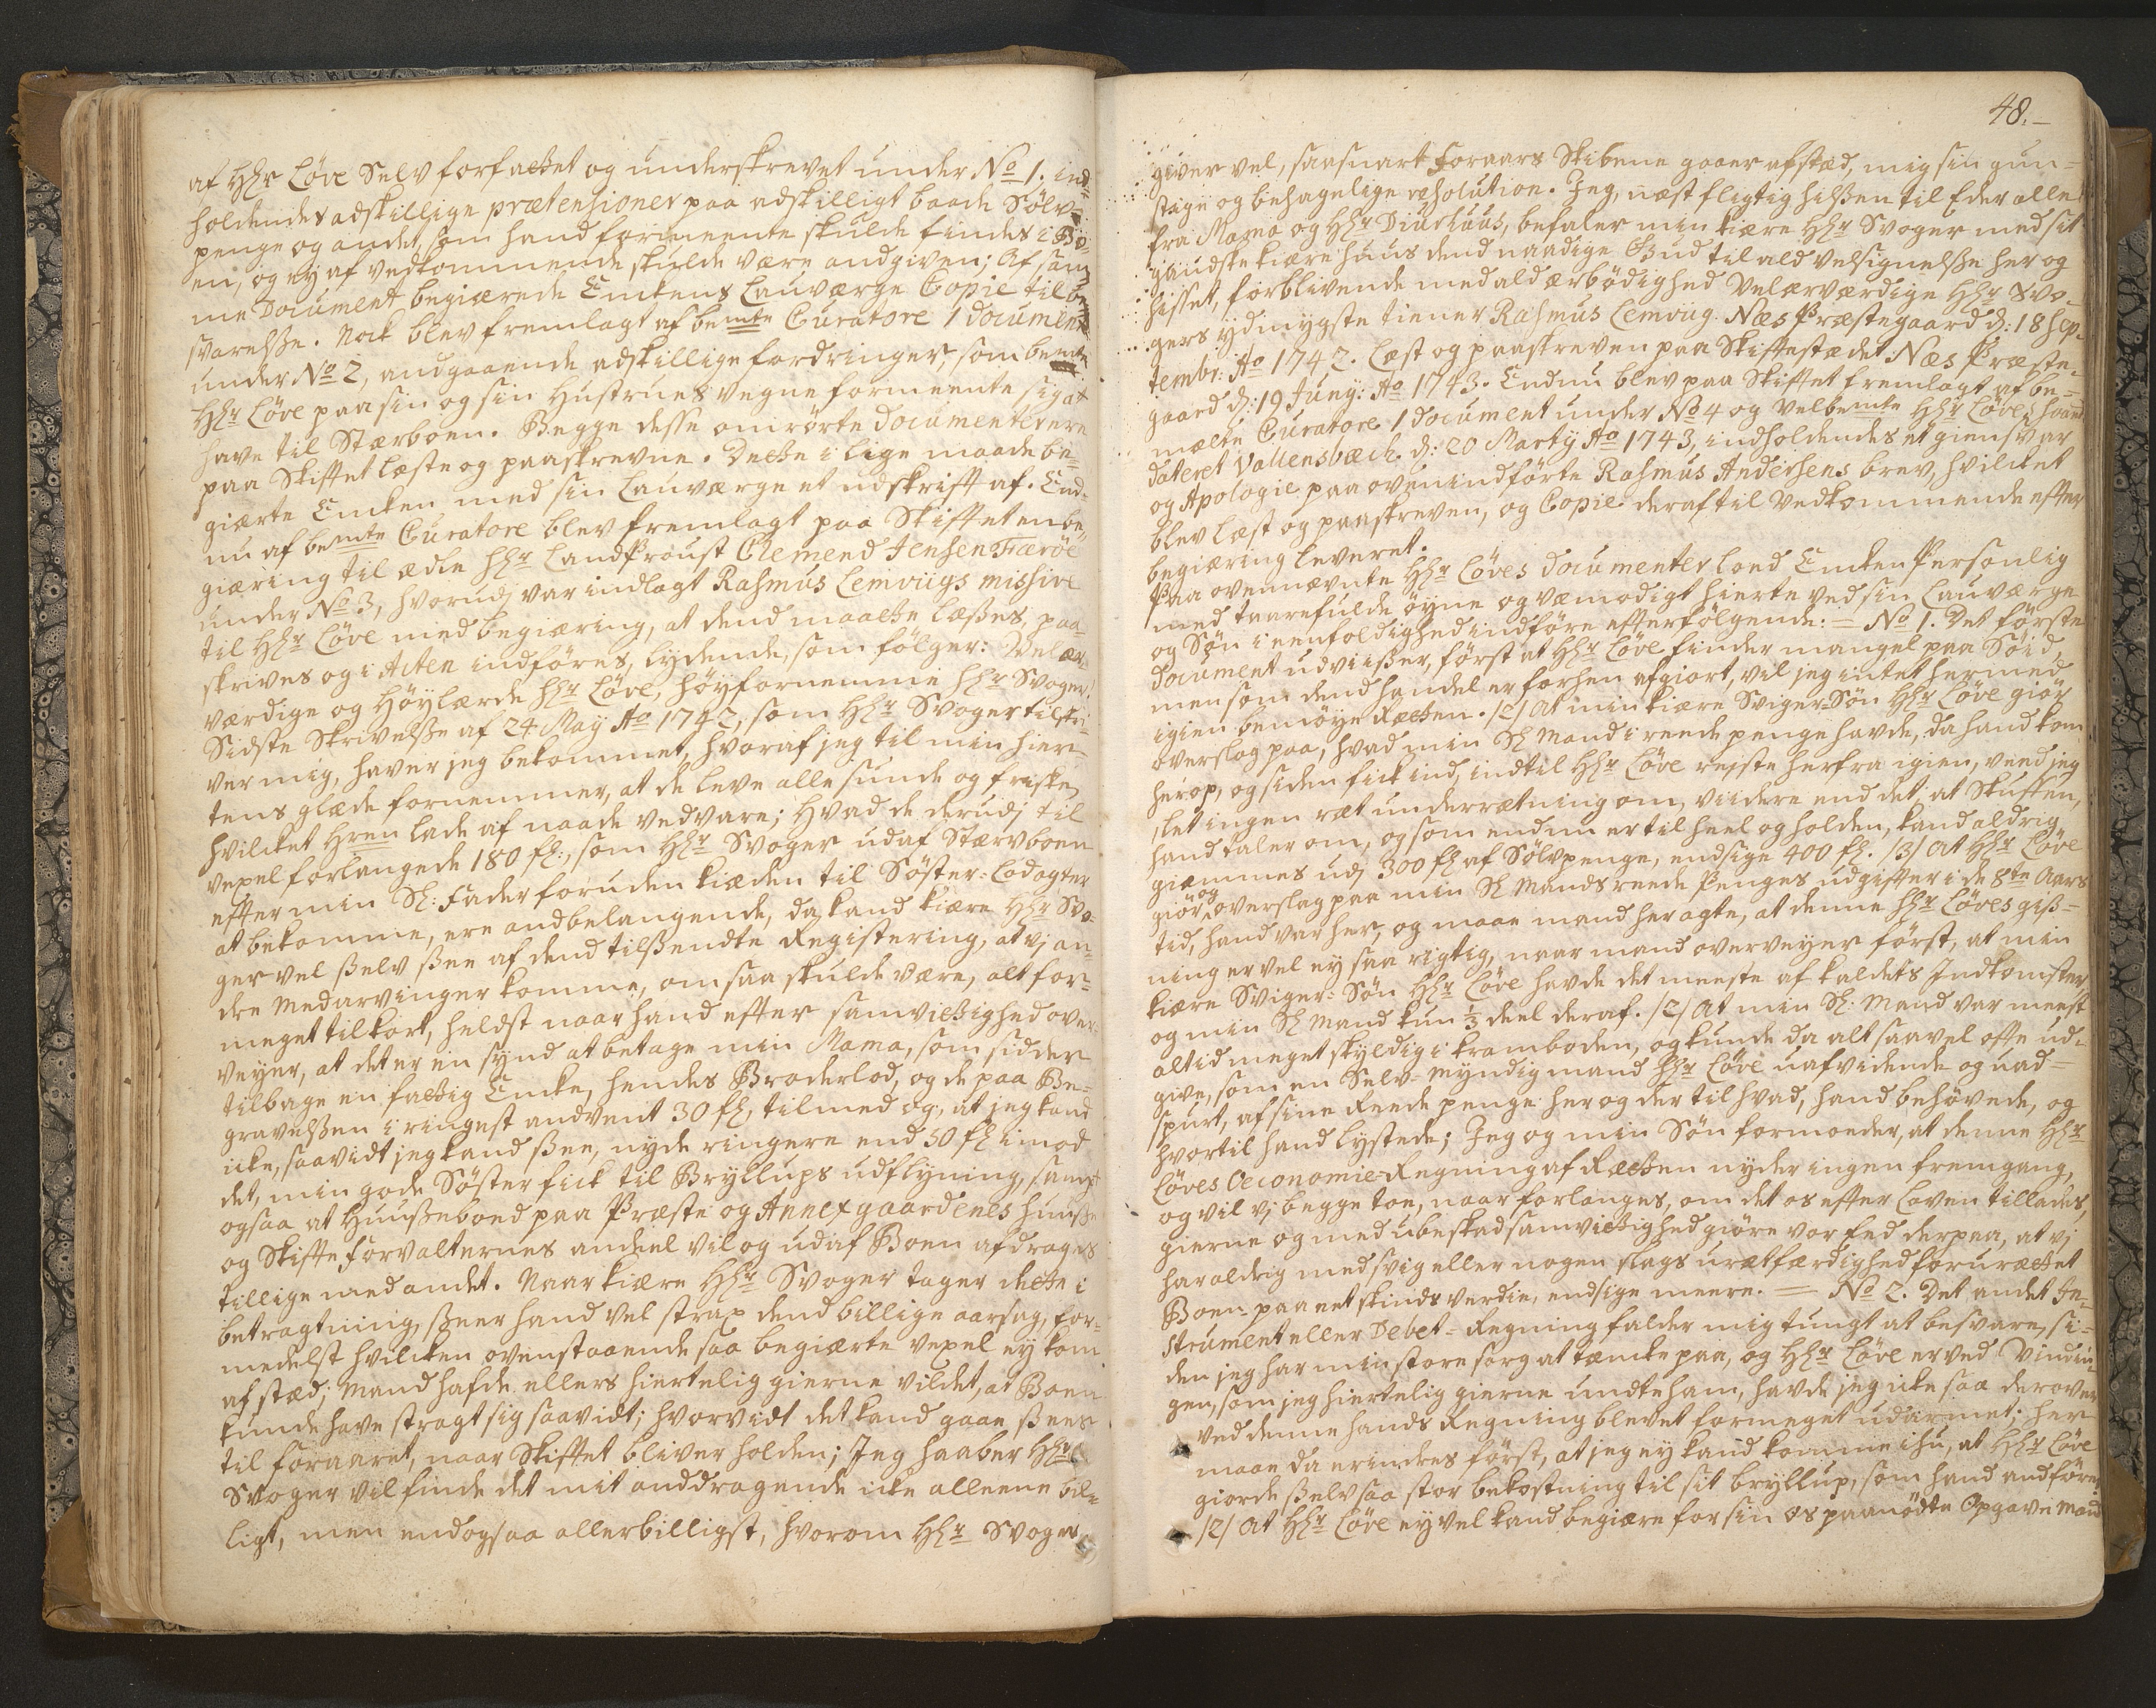 af Hhr Løve Selv forfattet og underskrevet under No 1. ind-
holdendes adskillige prætensioner paa adskilligt baade Sølv,
penge og andet, som hand formeente skulde findes i Bo-
en, og ey af vedkommende skulde være andgiven; Af sam-
me Document begiærede Enkens Lauværge Copie til be-
svarelse. Nock blev fremlagt af bemte Curatore 1 document
under No 2, andgaaende adskillige fordringer, som bemte
Hhr Løve paa sin og sin Hustrues vegne formeente sig at
have til Stærboen. Begge desse omrørte documenter ere
paa Skiftet læste og paaskrevne. Dette i lige maade be-
giærte Enken med sin Lauværge et udskrift af. End-
nu af bemte Curatore blev fremlagt paa Skiftet en be-
giæring til ædle Hhr Landproust Clemend Jensen Færöe
under No 3, hvorudj var indlagt Rasmus Lemviigs missive
til Hhr Løve med begiæring, at dend maatte læses, paa-
skrives og i Acten indföres, lydende, som fölger: Velær-
værdige og Höylærde Hhr Løve, höyfornemme Hhr Svoger!
Sidste Skrivelse af 24 May Ao 1742, som Hhr Svoger tilskri-
ver mig, haver jeg bekommet, hvoraf jeg til min hier-
tens glæde fornemmer, at de leve alle sunde og friske,
hvilcket Hren lade af naade vedvare; Hvad de derudj til
vexel forlangede 180 fl:, som Hhr Svoger udaf Stærvboen
efter min Sl: Fader foruden kiæden til Söster-Lod agter
at bekomme, ere andbelangende, da kand kiære Hhr Svo-
ger vel selv see af dend tilsendte Registering, at vj an-
dre Medarvinger komme, om saa skulde være, alt for-
meget tilkort, heldst naar hand efter samvittighed over-
veyer, at det er en synd at betage min Mama, som sidder
tilbage en fattig Enke, hendes Broderlod, og de paa Be-
gravelsen i ringest andvent 30 fl, tilmed og, at jeg kand
icke, saavidt jeg kand see, nyde ringere end 50 fl imod
det, min gode Söster fick til Bryllups udflyning, sampt
ogsaa at Huusebond paa Præste og Annexgaardenes huuse
og Skifte forvalternes andeel vil og udaf Boen afdrages
tillige med andet. Naar kiære Hhr Svoger tager dette i
betragtning, seer hand vel strax dend billige aarsag, for-
medelst hvilcken ovenstaaende saa begiærte vexel ey kom
af stæd; Mand hafde ellers hiertelig gierne vildet, at Boen
kunde have stragt sig saavidt; hvorvidt det kand gaae, sees
til foraaret, naar Skiftet bliver holden; Jeg haaber Hhr
Svoger vil finde det mit anddragende icke alleene bil-
ligt, men endogsaa allerbilligst, hvorom Hhr Svoger
48.
giver vel, saasnart Foraars Skibene gaaer afstæd, mig sin gun-
stige og behagelige resolution. Jeg, næst fligtig hilsen til Eder alle
fra Mama og Hhr Diurhuus, befaler min kiære Hhr Svoger med sit
gandske kiære huus dend naadige Gud til ald velsignelse her og
hisset, forblivende med ald ærbödighed Velærværdige Hhr Svo-
gers ydmygste tiener Rasmus Lemviig. Næs Præstegaard d: 18 Sep-
tembr: Ao 1742. Læst og paaskreven paa Skiftestædet Næs Præste-
gaard d: 19 Juny: Ao 1743. Endnu blev paa Skiftet fremlagt af be-
mælte Curatore 1 document under No 4 og Velbemte Hhr Løves haand
dateret Vallensbæch d: 20 Marty Ao 1743, indholdendes et giensvar
og Apologie paa ovenindförte Rasmus Andersens brev, hvilcket
blev læst og paaskreven, og Copie deraf til Vedkommende efter
begiæring leveret.
Paa ovennævnte Hhr Løves documenter lod Enken Personlig
med taarefulde öyne og væmodigt hierte ved sin Lauværge
og Søn i eenfoldighed indföre efterfölgende: = No 1. Det förste
document udviiser, først at Hhr Løve finder mangel paa Söid,
men som dend handel er forhen afgiort, vil jeg intet hermed
igien bemöye Retten. /2/ At min kiære Sviger-Søn Hhr Løve giör
overslag paa, hvad min Sl Mand i reede penge havde, da hand kom
herop, og siden fick ind, indtil Hhr Løve reyste herfra igien, veed jeg
slet ingen ræt underrætning om, viidere end det, at Skuffen,
hand taler om, og som endnu er til heel og holden, kand aldrig
giemmes udj 300 fl af Sölvpenge, endsige 400 fl. /3/ At Hhr Løve
giör og overslag paa min Sl Mands reede Penges udgifter i de 8te Aars
tid, hand var her, og maae mand her agte, at denne Hhr Løves gis-
ning er vel ey saa rigtig, naar mand overveyer först, at min
kiære Sviger-Søn Hhr Løve havde det meeste af kaldets Indkomster,
og min Sl Mand kun 1/3 deel deraf. /2/ At min Sl: Mand var meest
altid meget skyldig i kramboden, og kunde da alt saavel ofte ud-
give, som en Selv-myndig mand Hhr Løve uafvidende og uad-
spurt, af sine Reede penge her og der til hvad, hand behövede, og
hvortil hand lystede; Jeg og min Søn formoder, at denne Hhr
Løves Oeconomie-Regning af Retten nyder ingen fremgang,
og vil vj begge toe, naar forlanges, om det os efter Loven tillades,
gierne og med ubeskadsamvittighed giöre vor Eed derpaa, at vj
har aldrig med svig eller nogen slags urætfærdighed forurættet
Boen paa eet skinds verdie, endsige meere. = No 2. Det andet In-
strument eller Debet-Regning falder mig tungt at besvare, si-
den jeg har min store sorg at tæncke paa, og Hhr Løve er ved Vindin-
gen, som jeg hiertelig gierne undte ham, havde jeg icke saa derover
ved denne hands Regning blevet formeget udarmet; her
maae da erindres först, at jeg ey kand komme ihu, at Hhr Løve
giorde selv saa stor bekostning til sit bryllup, som hand andförer
/2/ At Hhr Løve ey vel kand begiære for sin os paanödte Opgave Mand